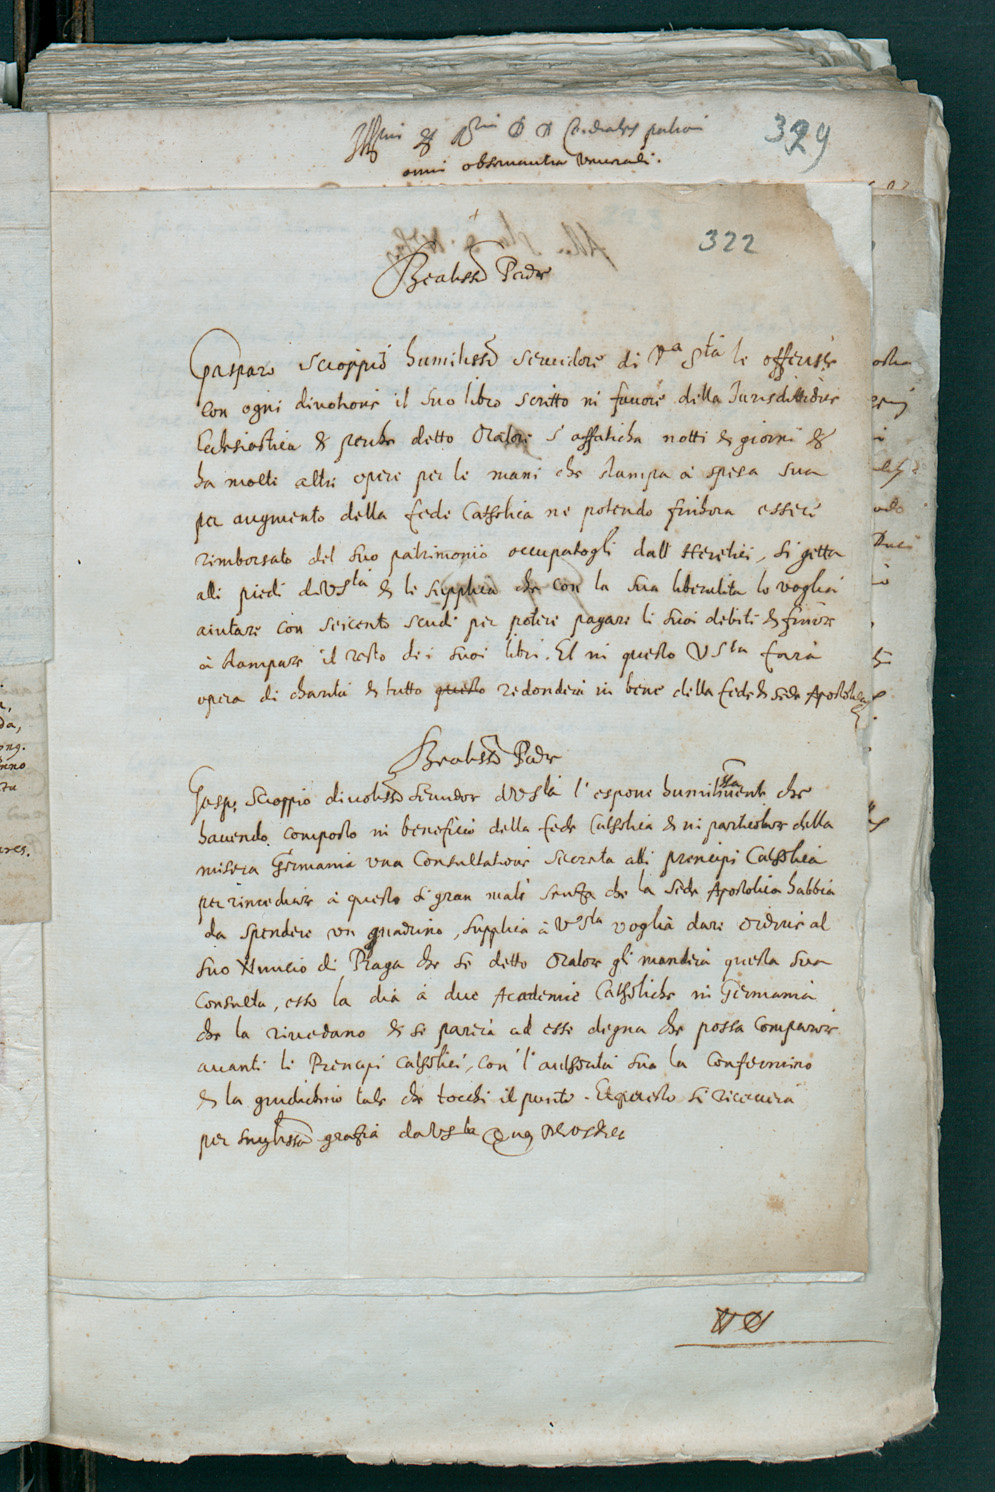 omni observantia venerali.
329
322
Beatisso Padre
Gasparo Scioppio humilisso servidore di Va Sta le offerisce
con ogni divotione il suo libro scritto in favore della Jurisdittione
Eclesiastica & perche detto Oratore s' affaticha notti & giorni &
ha molte altre opere per le mani che stampa à spesa sua
per augmento della fede Catholica ne potendo finhora essere
rimborsato del suo patrimonio occupatogli dall Heretici, si getta
alli piedi di VSta & le supplica che con la sua liberalita lo voglia
aiutare con seicento scudi per potere pagare li suoi debiti & finire
à stampare il resto dei suoi libri. Et in questo VSta farà
opera di charità & tutto questo redonderà in bene della fede & sede Apostolica
Beatisso Padre
Gasp. Scioppio divotisso servidor di VSta l'espone humilissmamente che
havendo composto in beneficio della fede Catholica & in particolare della
misera Germania una Consultatione secreta alli prencipi Catholici
per rimediare à questo si gran male senza che la Sede Apostolica habbia
da spendere un quadrino, supplica à VSta voglia dare ordine al
suo Nuncio di Praga che se detto Oratore gli manderà questa sua
Consulta, esso la dia à due Academie Catholiche in Germania
che la rivedano & se parerà ad esse degna che possa comparire
avanti li Prencipi catholici, con l'authorità sua la confermino
& la giudichino tale che tocchi il punto. Et questo si riceverà
per singlissa gratia da VSta Quam Deus &c